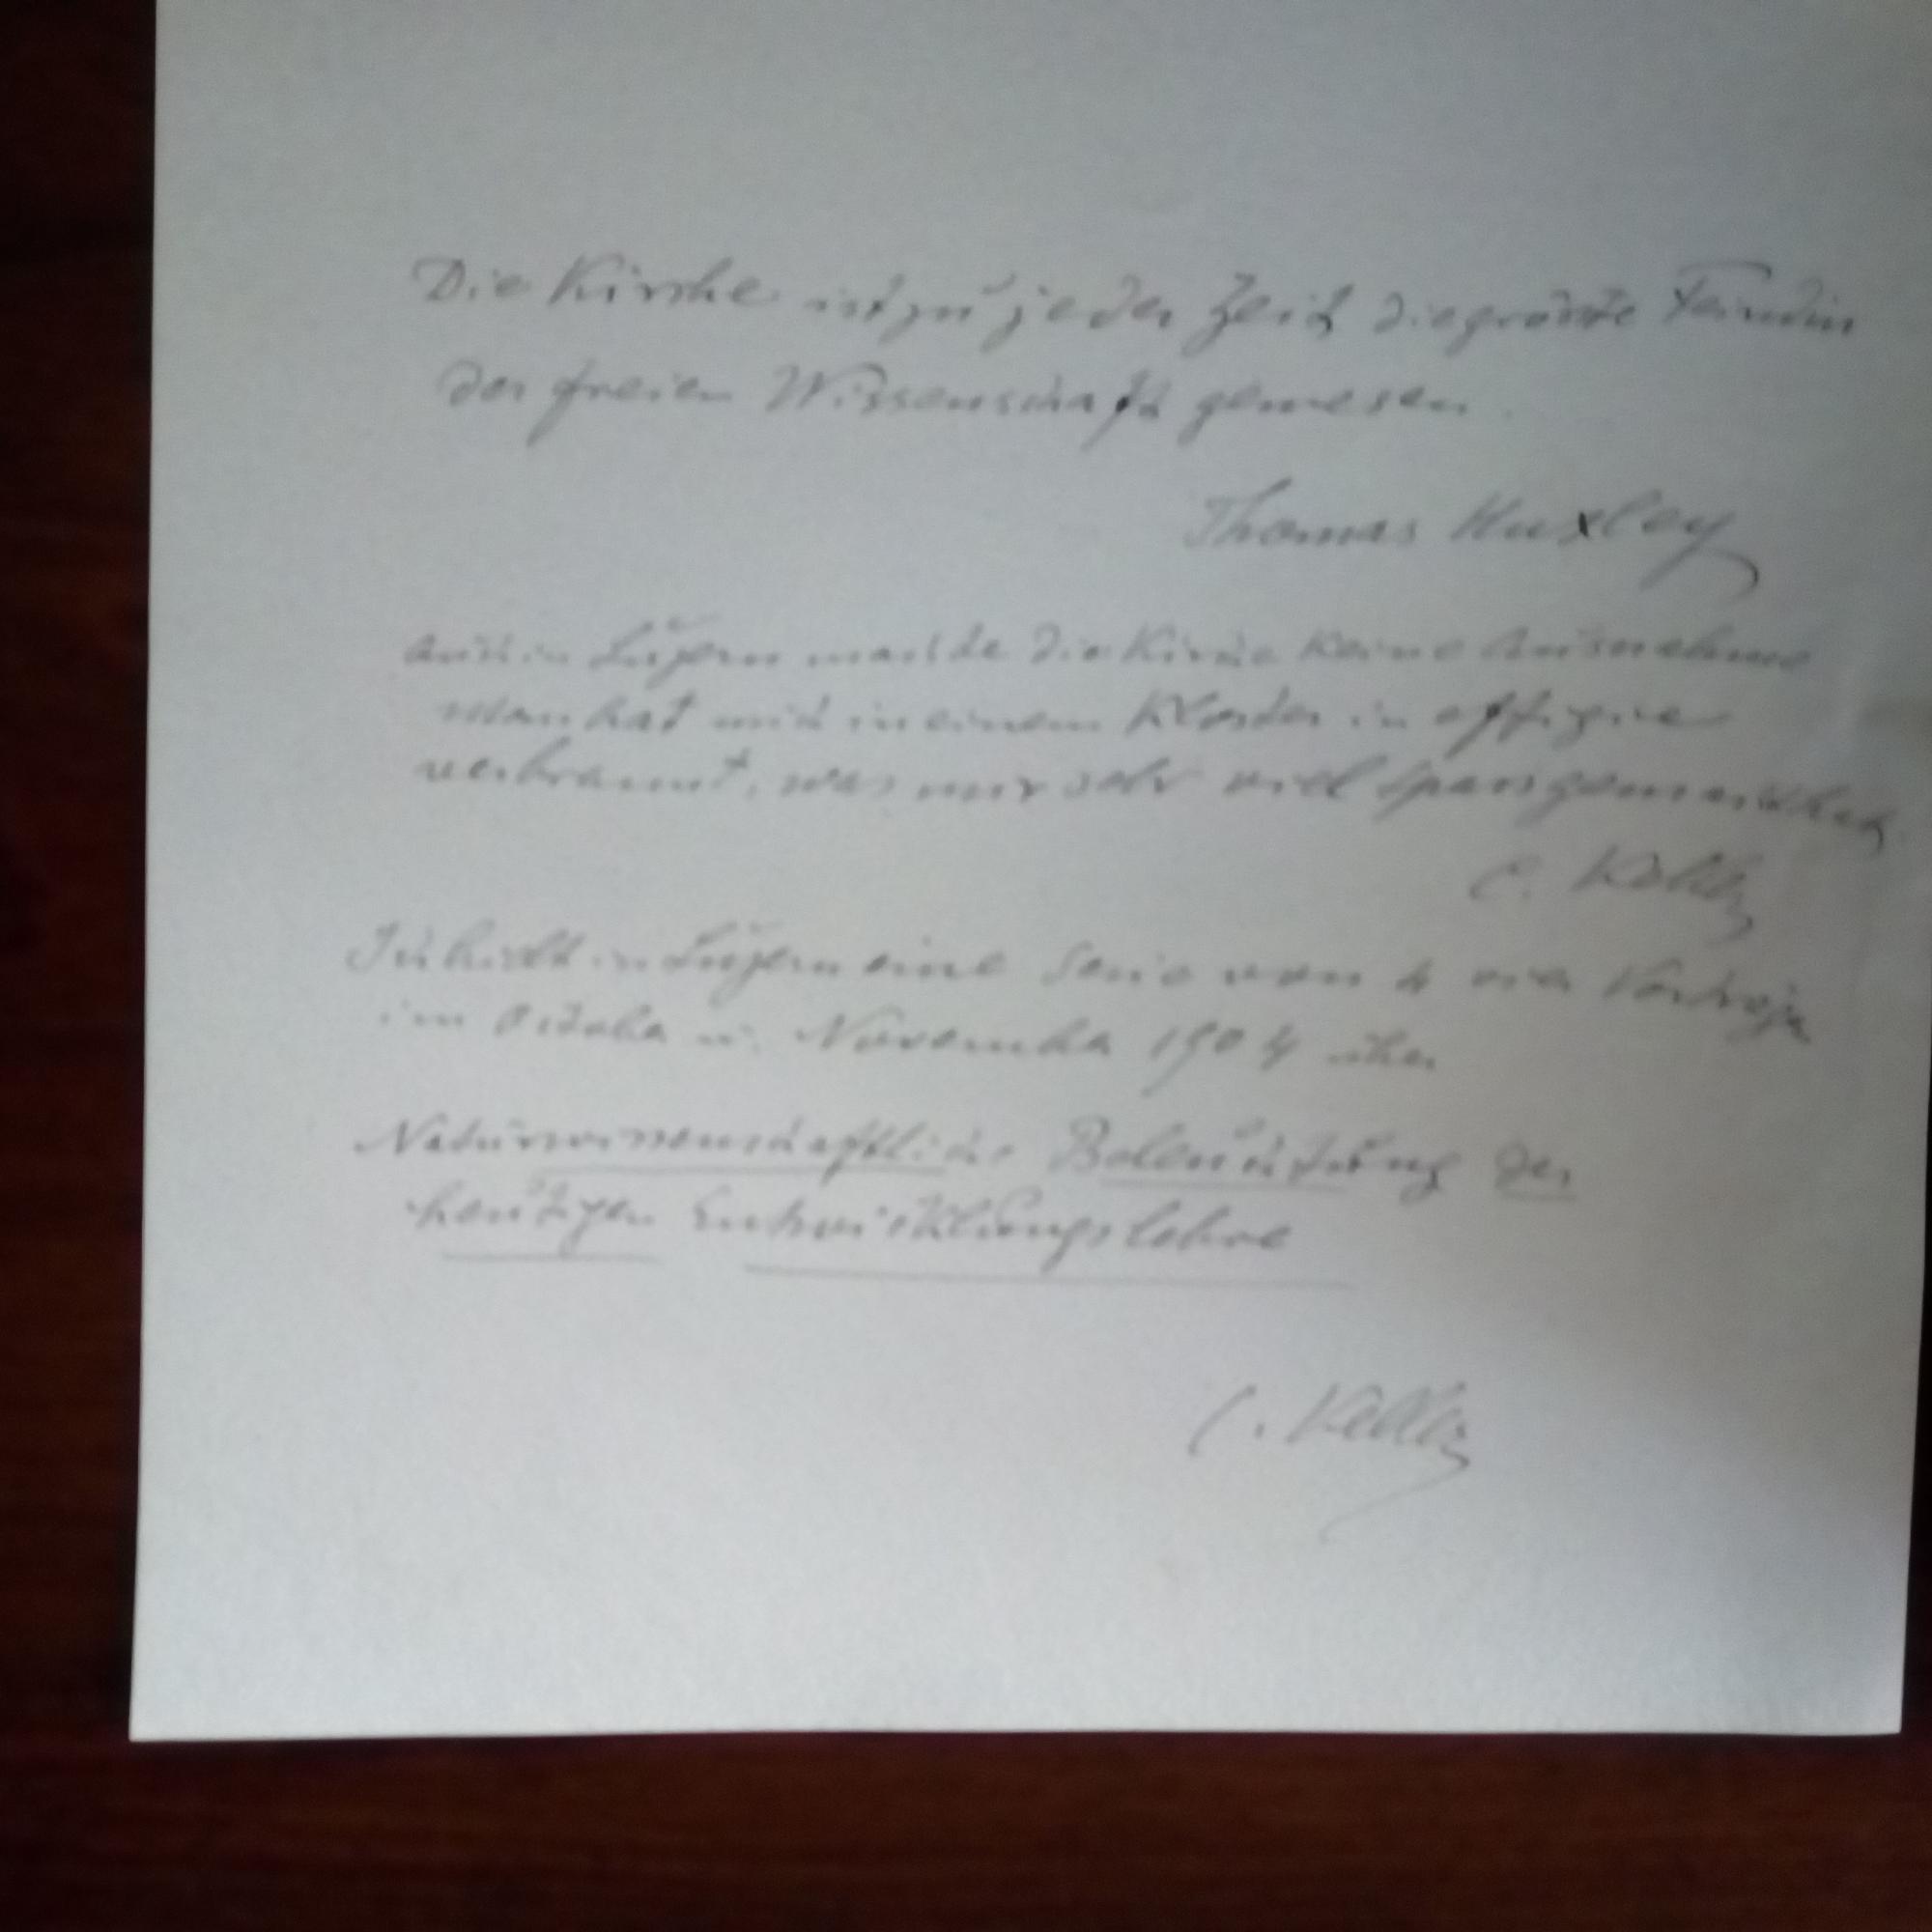 Die Kirche ist zu jeder Zeit die grösste Feindin
der freien Wissenschaft gewesen.
Thomas Huxley
Auch in Luzern machte die Kirche keine Ausnahme
man hat mich in einem Kloster in effigie
verbrannt, was mir sehr viel Spass gemacht hat.
C. Keller
Ich hielt in Luzern eine Serie von 4 vier Vorträgen
im October u. November 1904 über
Naturwissenschaftliche Beleuchtung der
heutigen Entwicklungslehre
C. Keller